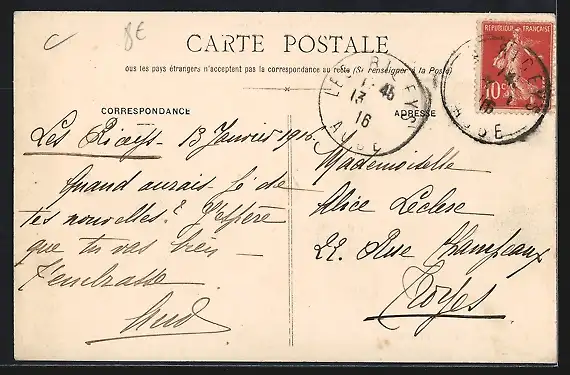 8€
CARTE POSTALE
ous les pays étrangers n'acceptent pas la correspondance au recto (Se renseigner à la Poste)
RÉPUBLIQUE FRANÇAISE
10c
LES RICEYS
1·45
13
16
AUBE
RICEYS
16
AUBE
CORRESPONDANCE
ADRESSE
Les Riceys - 13 Janvier 1916
Quand aurais-je de
tes nouvelles? J'espère
que tu vas bien
J'embrasse
Mademoiselle
Alice Leclerc
22, Rue Champeaux
Troyes